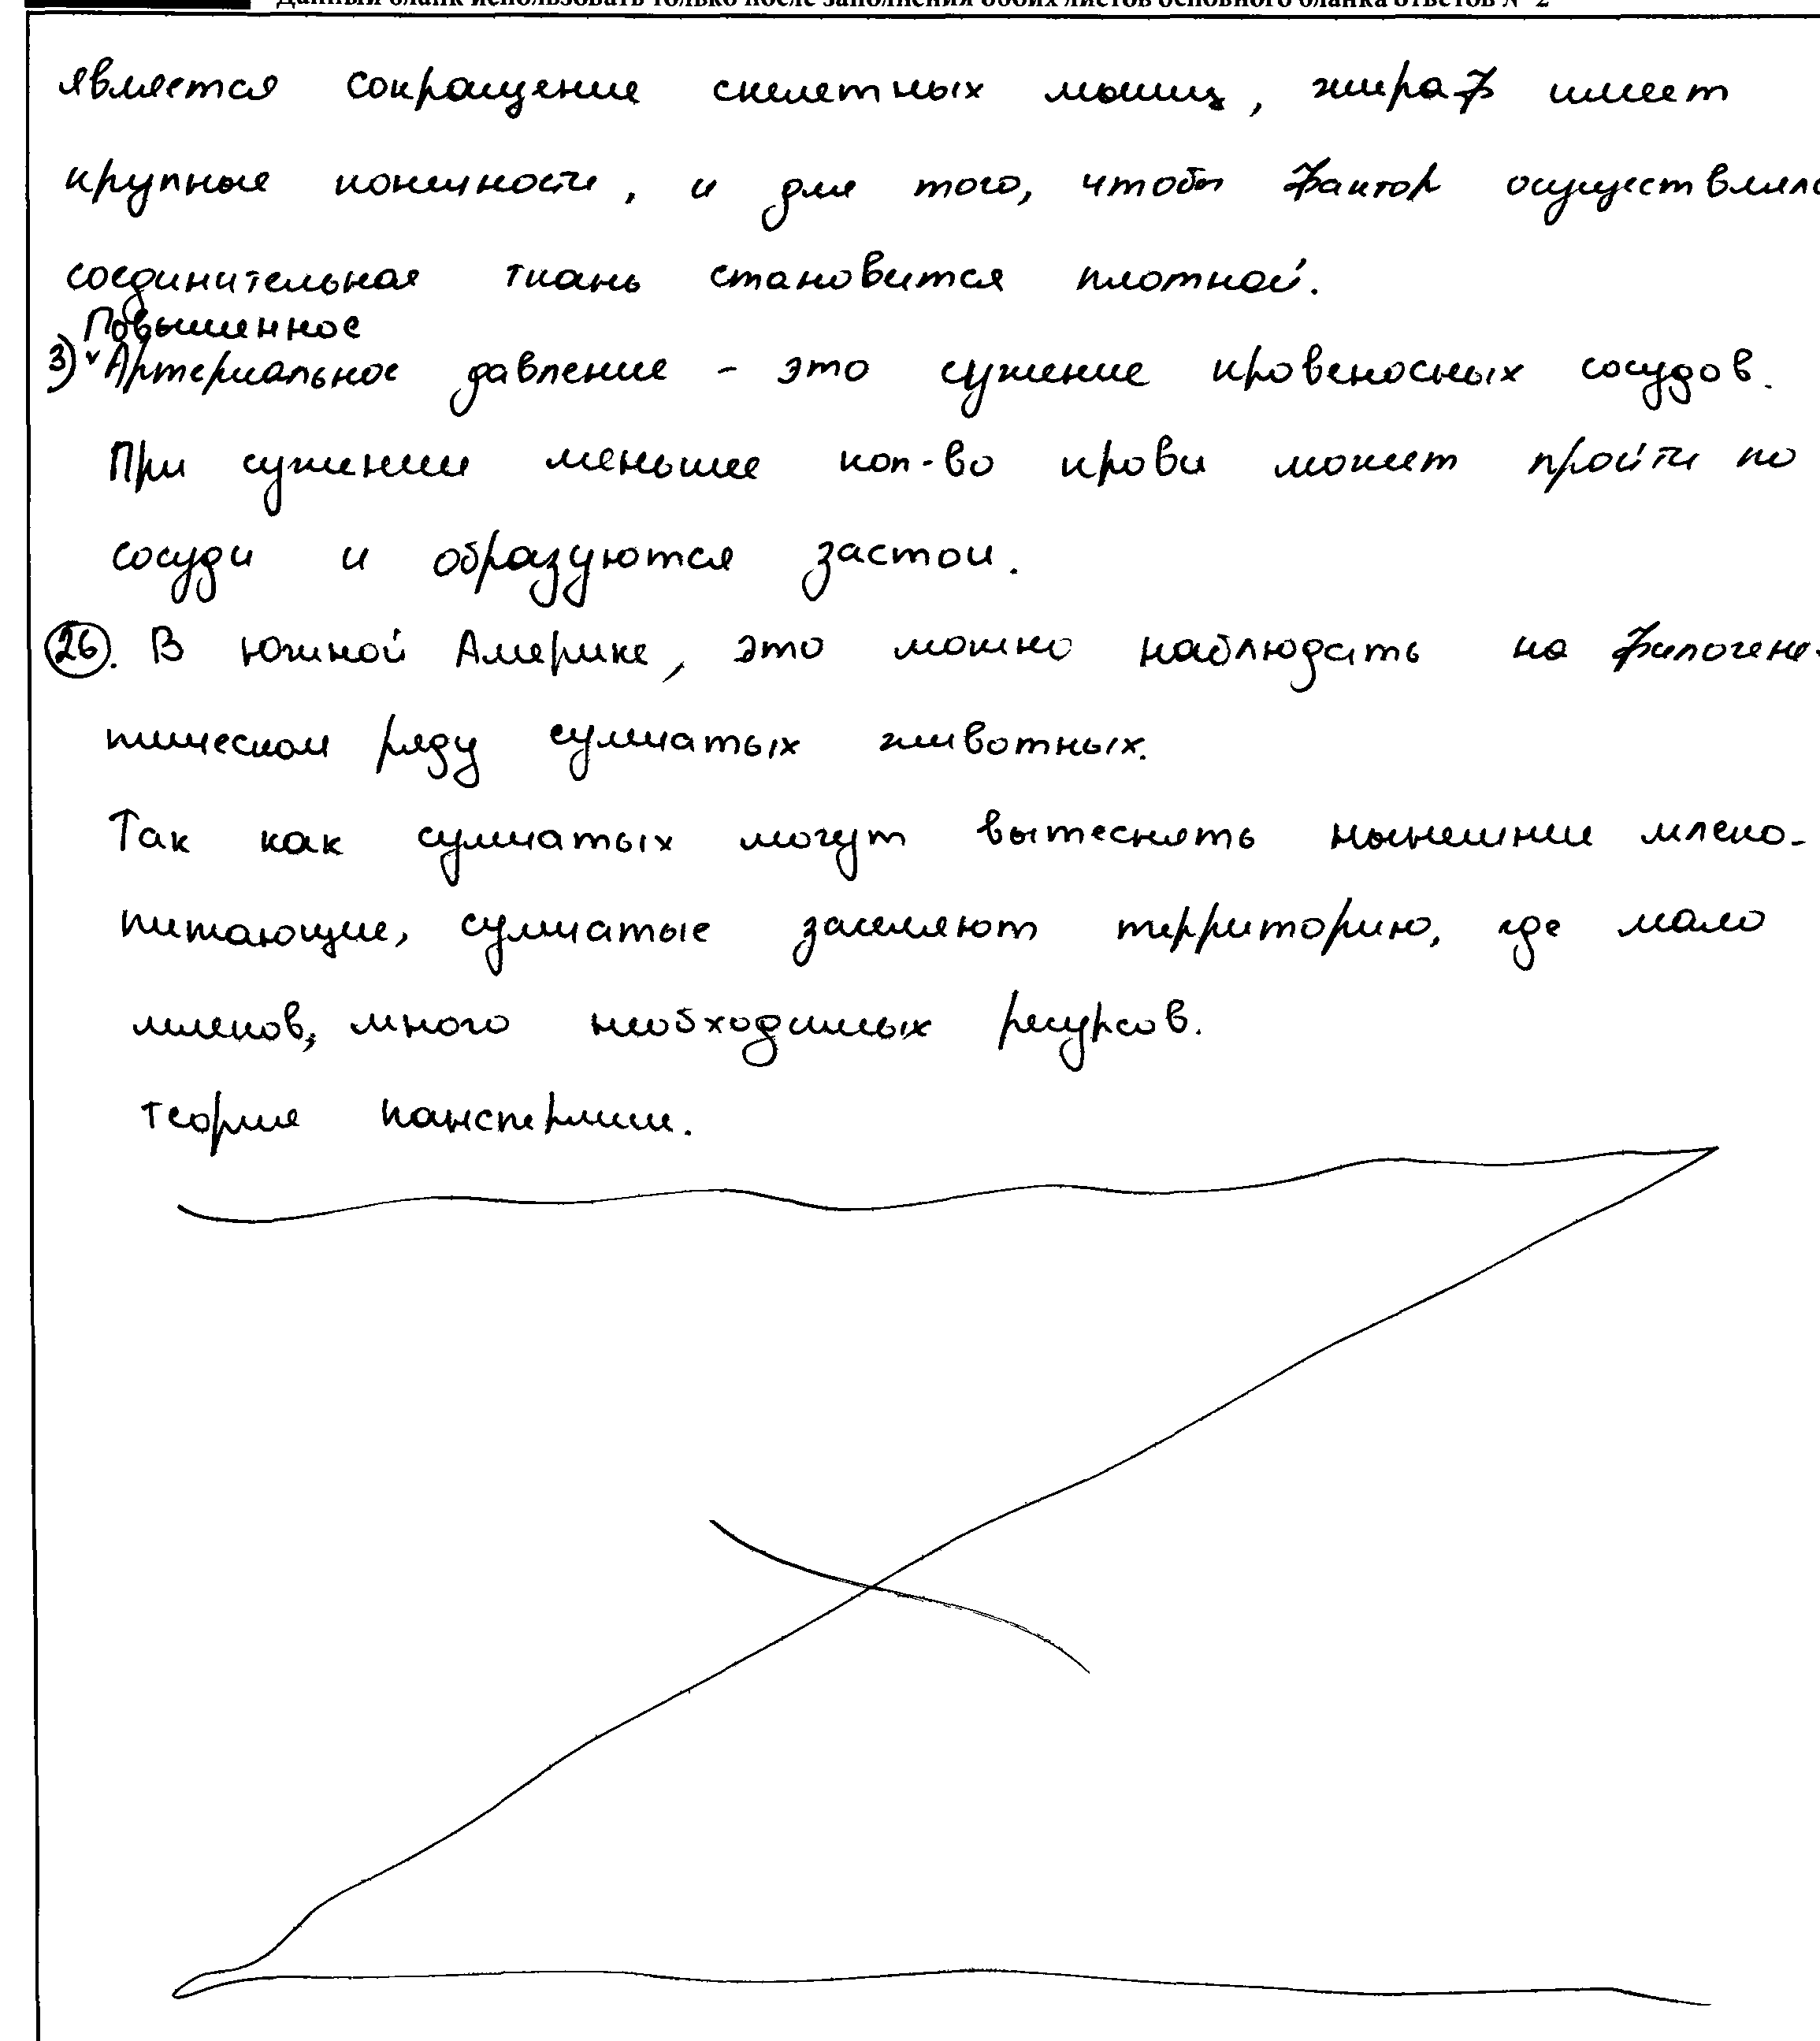 Данный бланк использовать только после заполнения обоих листов основного бланка ответов № 2
является сокращение скелетных мышц, жираф имеет
крупные конечности, и для того, чтобы фактор осуществлялс
соединительная ткань становится плотной.
Повышенное
3) Артериальное давление - это сужение кровеносных сосудов.
При сужении меньшее кол-во крови может пройти по
сосуди и образуются застои.
26. В Южной Америке, это можно наблюдать на филогене-
тическом ряду сумчатых животных.
Так как сумчатых могут вытеснять нынешние млеко-
питающие, сумчатые заселяют территорию, где мало
млеков, много необходимых ресурсов.
Теория панспермии.